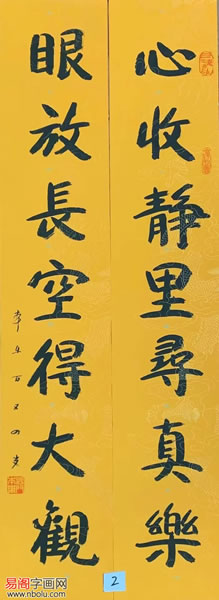 心收静里尋真樂
眼放長空得大觀
2
易阁字画网
www.nbolu.com